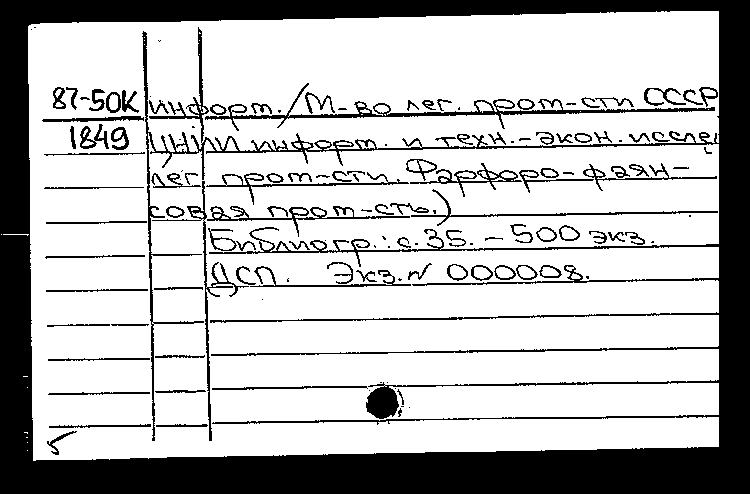 87-50К информ. / М-во лег. пром-сти СССР
1849 ЦНИИ информ. и техн.-экон. исслед
лег. пром-сти. Фарфоро-фаян-
совая пром-сть.)
Библиогр.: с. 35. - 500 экз.
ДСП. Экз. № 000008.
5